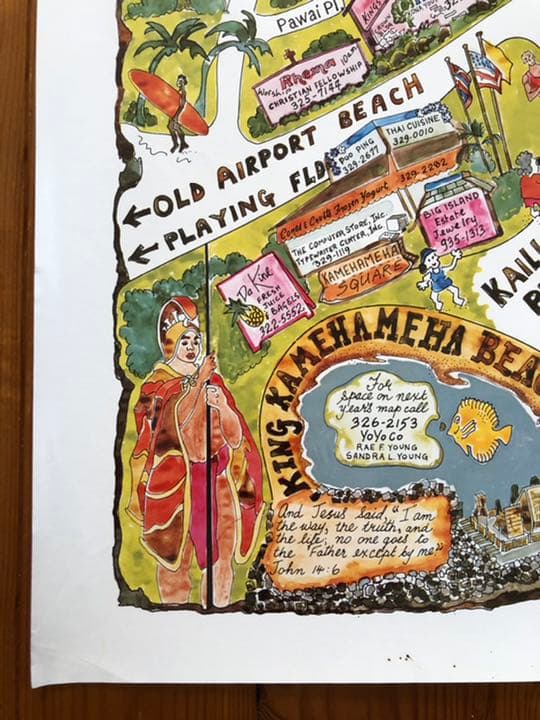 Pawai Pl,
Rhema
Worship 10am
CHRISTIAN FELLOWSHIP
325-7144
OLD AIRPORT BEACH
PLAYING FLD
POO PING
329-2677
THAI CUISINE
329-0010
Cones & Cents Frozen Yogurt 329-2202
THE COMPUTER STORE, INC.
TYPEWRITER CENTER, INC.
329-1119
KAMEHAMEHA
SQUARE
BIG ISLAND
Estate
Jewelry
935-1313
Da Kine
FRESH
JUICE
& BAGELS
322-5552
KAIL
KING KAMEHAMEHA BEA
For
space on next
year's map call
326-2153
YoYoCo
RAE F. YOUNG
SANDRA L. YOUNG
And Jesus said, "I am
the way, the truth, and
the life; no one goes to
the Father except by me."
John 14:6